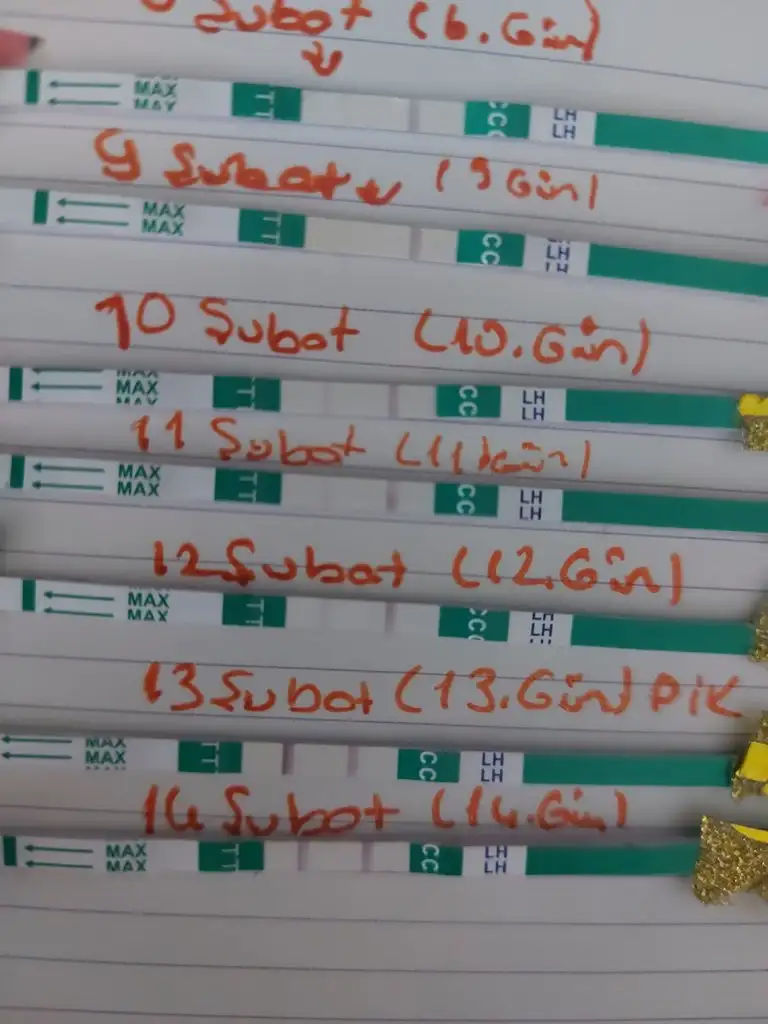 Subat (6.Gün)
MAX
MAX
TT
CC
LH
LH
9 Subat (9 Gün)
MAX
MAX
TT
CC
LH
LH
10 Subat (10.Gün)
MAX
MAX
TT
CC
LH
LH
11 Subat (11.Gün)
MAX
MAX
TT
CC
LH
LH
12 Subat (12.Gün)
MAX
MAX
TT
CC
LH
LH
13 Subat (13.Gün) PiK
MAX
MAX
TT
CC
LH
LH
14 Subat (14.Gün)
MAX
MAX
TT
CC
LH
LH